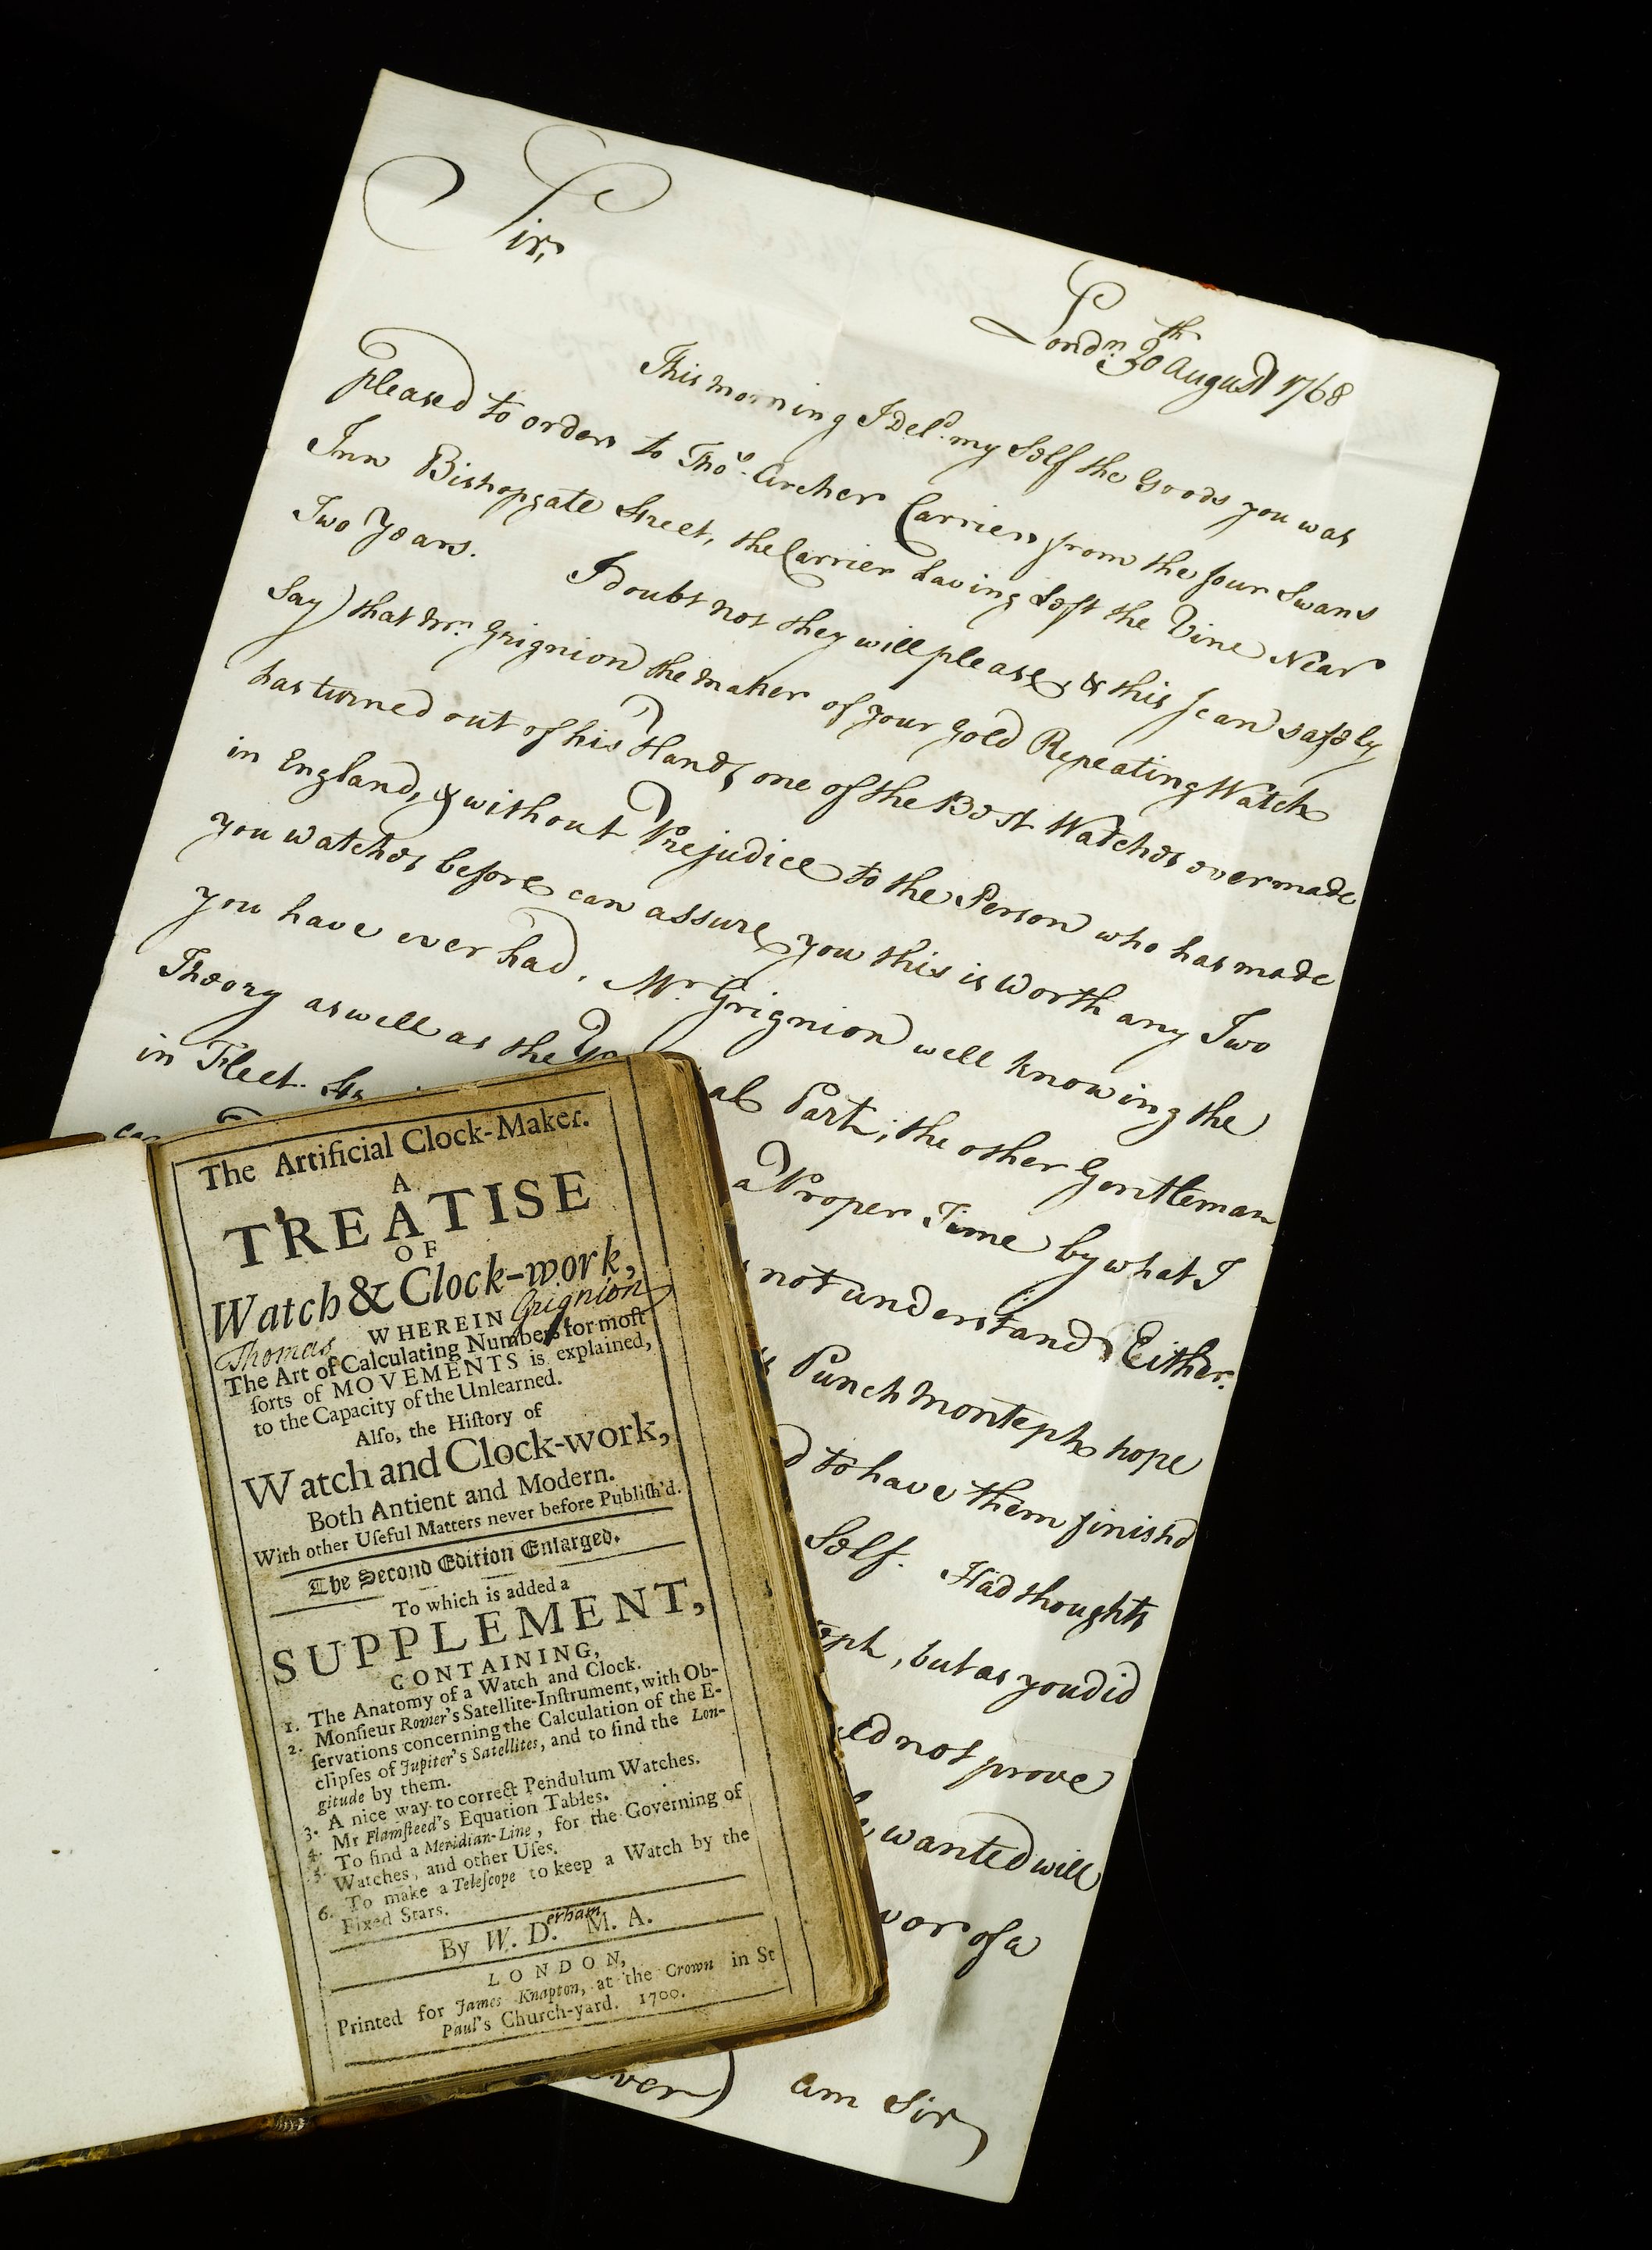 Sir,
Londn. 30th August 1768
This morning I Deld. my Self the Goods you was
pleased to order to Thos. Archer Carrier from the four Swans
Inn Bishopsgate Street, the Carrier having Left the Vine Near
Two Years.
I doubt not they will please, & this I can safely
Say) that Mr. Grignion the maker of your Gold Repeating Watch
has turned out of his Hands one of the Best Watches ever made
in England, & without Prejudice to the Person who has made
you watches before can assure you this is worth any Two
you have ever had, Mr Grignion well knowing the
Theory as well as the Part; the other Gentleman
in Fleet a Proper Time by what I
not understand Either.
Punch Monteph hope
to have them finishd
Self. Had thoughts
, but as you did
not prove
wanted will
of a
am Sir
The Artificial Clock-Maker.
A
TREATISE
OF
Watch & Clock-work,
WHEREIN
Thomas Grignion
The Art of Calculating Numbers for moſt
ſorts of MOVEMENTS is explained,
to the Capacity of the Unlearned.
Alſo, the Hiſtory of
Watch and Clock-work,
Both Antient and Modern.
With other Uſeful Matters never before Publiſh'd.
The Second Edition Enlarged.
To which is added a
SUPPLEMENT,
CONTAINING,
1. The Anatomy of a Watch and Clock.
2. Monſieur Romer's Satellite-Inſtrument, with Ob-
ſervations concerning the Calculation of the E-
clipſes of Jupiter's Satellites, and to find the Lon-
gitude by them.
3. A nice way to correct Pendulum Watches.
4. Mr Flamſteed's Equation Tables.
5. To find a Meridian-Line, for the Governing of
Watches, and other Uſes.
6. To make a Teleſcope to keep a Watch by the
Fixed Stars.
By W. D.erham M. A.
LONDON,
Printed for James Knapton, at the Crown in St
Paul's Church-yard. 1700.